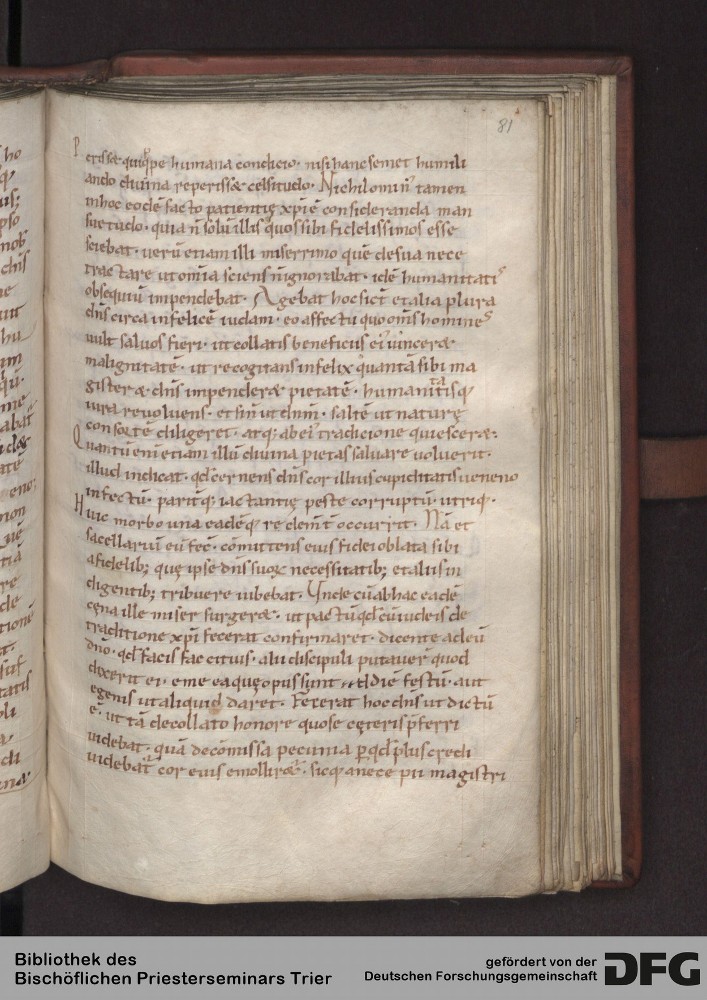 81
P crissæ· quippe humana condicio· nisi hanc semet humili
ando diuina reperissæ celsitudo· Nichilomin᷒ tamen
in hoc eodē facto patientię xp̄i ē consideranda man
suetudo· quia n̄ solū illis quos sibi fidelissimos esse
sciebat· uerū etiam illi miserrimo quē de sua nece
tractare ut om̄ia sciens n̄ ignorabat· idē humanitatis
obsequiū impendebat· Agebat hoc sic̄ et alia plura
dn̄s circa infelicē iudam· eo affectu quo om̄s homines
uult saluos fieri· ut collatis beneficiis ei᷒ uincer&
malignitatē· ut recogitans infelix quantā sibi ma
gister & dn̄s impender& pietatē· humanitatisq;
iura reuoluens· et sin̄ ut dn̄m· saltē ut naturę
consortē diligeret· atq; ab ei᷒ tradicione quiescer&·
Quantū eni etiam illū diuina pietas saluare uoluerit·
illud indicat· qd̄ cernens dn̄s cor illius cupiditatis ueneno
infectū· parit̄q; iactantię peste corruptū· utriq·
Huic morbo una eadēq; re clem̄t occurrit· Nā et
sacellariū eū fec̄· cōmittens eius fidei oblata sibi
a fidelib; quę ipse dn̄s suoꝝ necessitatib; et aliis in
digentib; tribuere iubebat· Unde cū ab hac eadē
cęna ille miser surger&· ut pactū qd̄ cū iudeis de
traditione xp̄i fecerat confirmaret· dicente ad eū
dn̄o· qd̄ facis fac citius· alii discipuli putauer̄ quod
dixerit ei· eme ea quę opus sunt ad diē festū· aut
egenis ut aliquid daret· Fecerat hoc dn̄s ut dictū
ē· ut tā decollato honore quo se cęteris p̄ferri
uidebat· quā decōmissa pecunia ꝑ qd̄ plus credi
uidebat᷒ cor eius emollir&᷒· sicq; a nece pii magistri
Bibliothek des
Bischöflichen Priesterseminars Trier
gefördert von der
Deutschen Forschungsgemeinschaft
DFG